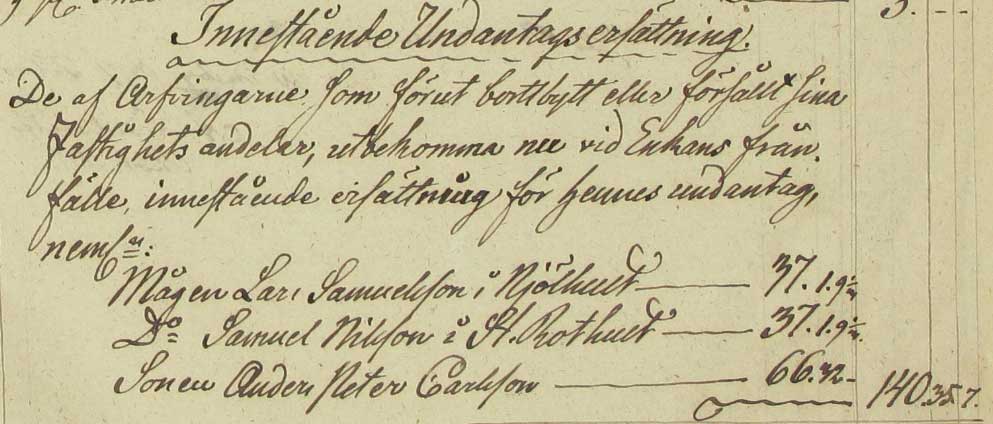 3. - -
Innestående Undantagsersättning.
De af Arfvingarne, som förut bortbytt eller försålt sina
Fastighets andelar, utbekomma nu vid Enkans från-
fälle, innestående ersättning för hennes undantag,
neml:n:
Mågen Lars Samuelsson i Njölhult 37. 1. 9 1/2
Do Samuel Nilsson i St. Rothult 37. 1. 9 1/2.
Sonen Anders Peter Carlsson 66. 32 - 140. 35. 7.